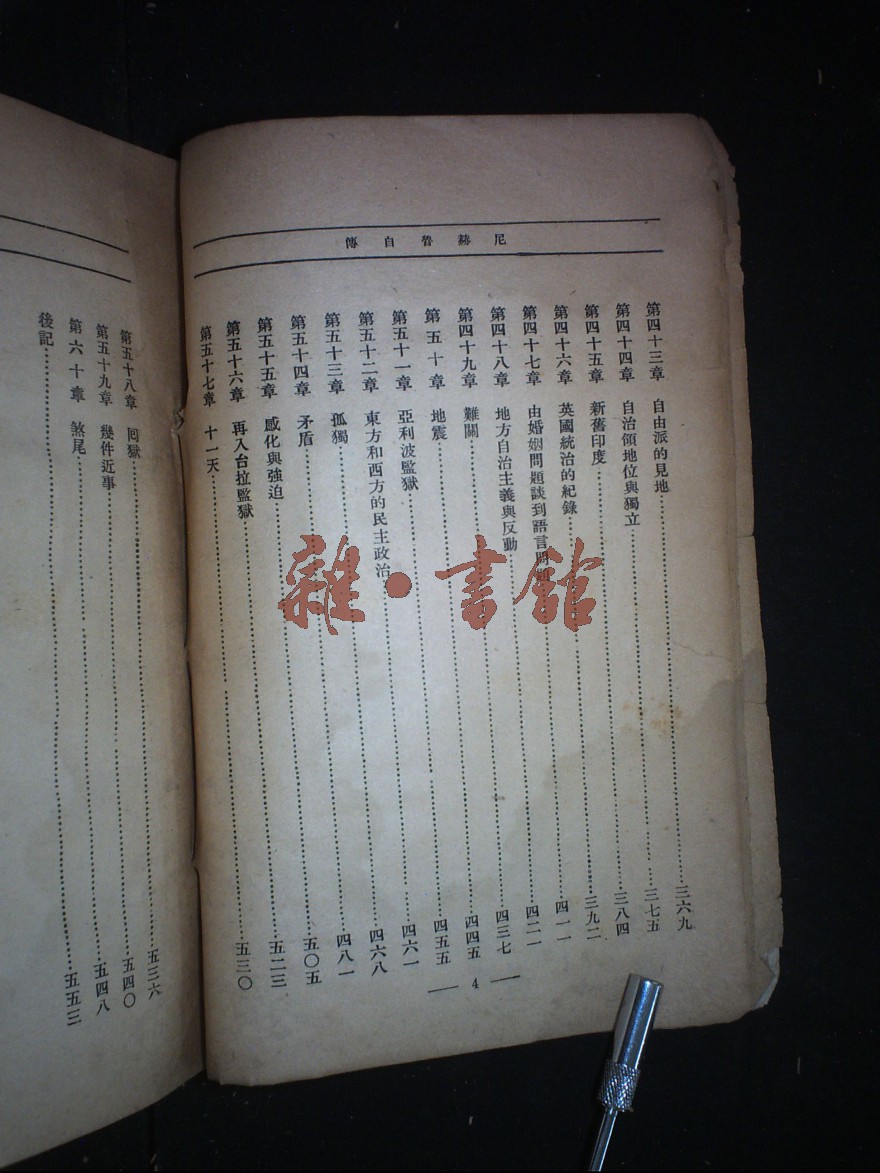 尼赫魯自傳
第四十三章 自由派的見地……三六九
第四十四章 自治領地位與獨立……三七五
第四十五章 新舊印度……三八四
第四十六章 英國統治的紀錄……三九二
第四十七章 由婚姻問題談到語言問題……四一一
第四十八章 地方自治主義與反動……四二一
第四十九章 難關……四三七
第五十章 地震……四四五
第五十一章 亞利波監獄……四五五
第五十二章 東方和西方的民主政治……四六一
第五十三章 孤獨……四六八
第五十四章 矛盾……四八一
第五十五章 感化與強迫……五〇五
第五十六章 再入台拉監獄……五二三
第五十七章 十一天……五三〇
— 4 —
第五十八章 囘獄……五三六
第五十九章 幾件近事……五四〇
第六十章 煞尾……五四八
後記……五五三
雜·書館